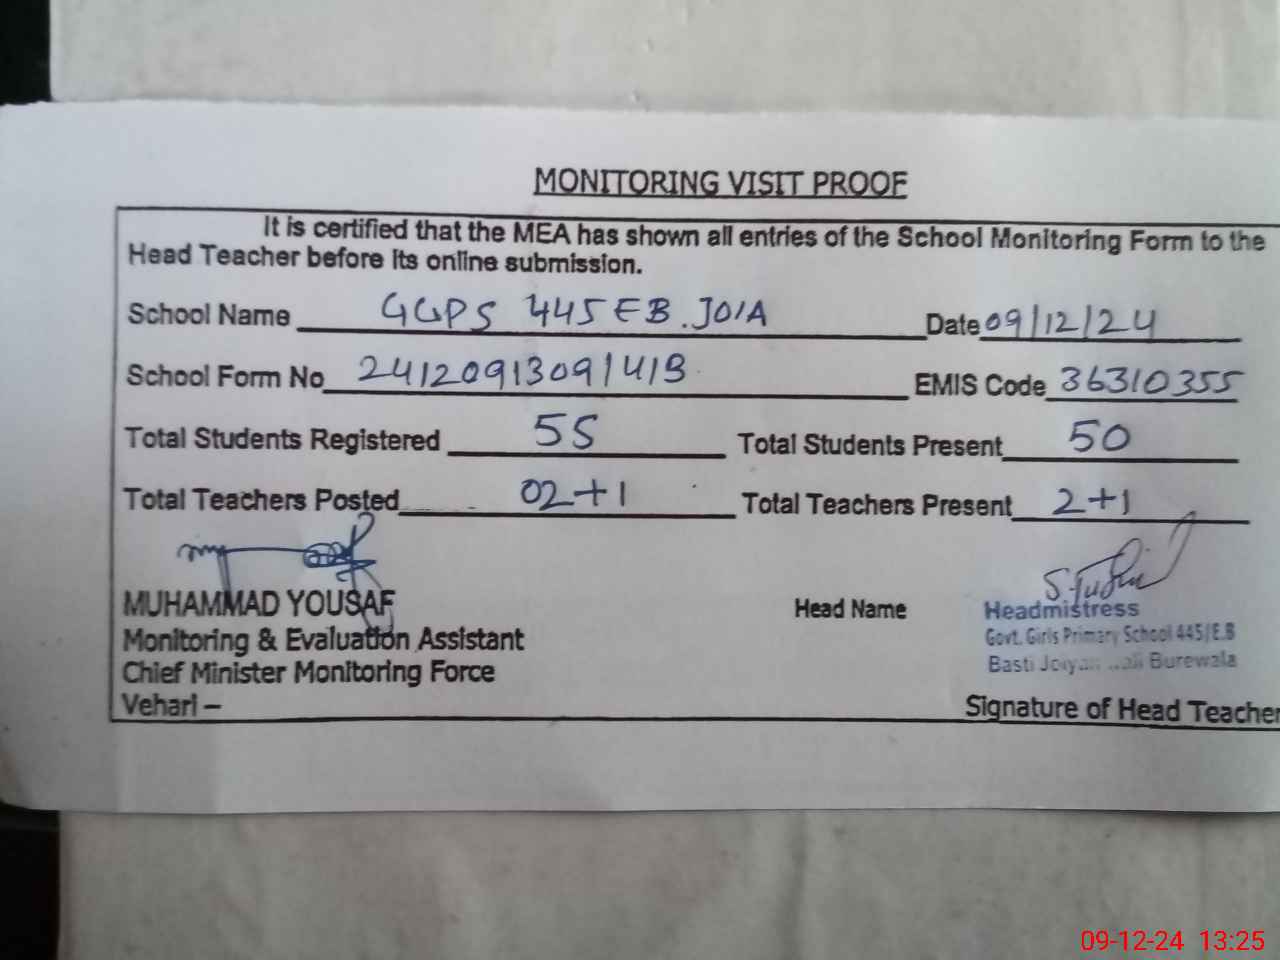 MONITORING VISIT PROOF
It is certified that the MEA has shown all entries of the School Monitoring Form to the
Head Teacher before its online submission.
School Name GGPS 445 EB. JOIA Date 09/12/24
School Form No 2412091309141B EMIS Code 36310355
Total Students Registered 55 Total Students Present 50
Total Teachers Posted 02+1 Total Teachers Present 2+1
MUHAMMAD YOUSAF Head Name Headmistress
Monitoring & Evaluation Assistant Govt. Girls Primary School 445/E.B
Chief Minister Monitoring Force Basti Burewala
Vehari – Signature of Head Teacher
09-12-24 13:25